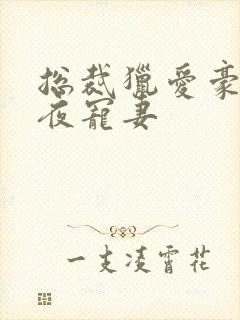 总裁獵愛豪
夜寵妻
一支凌霄花